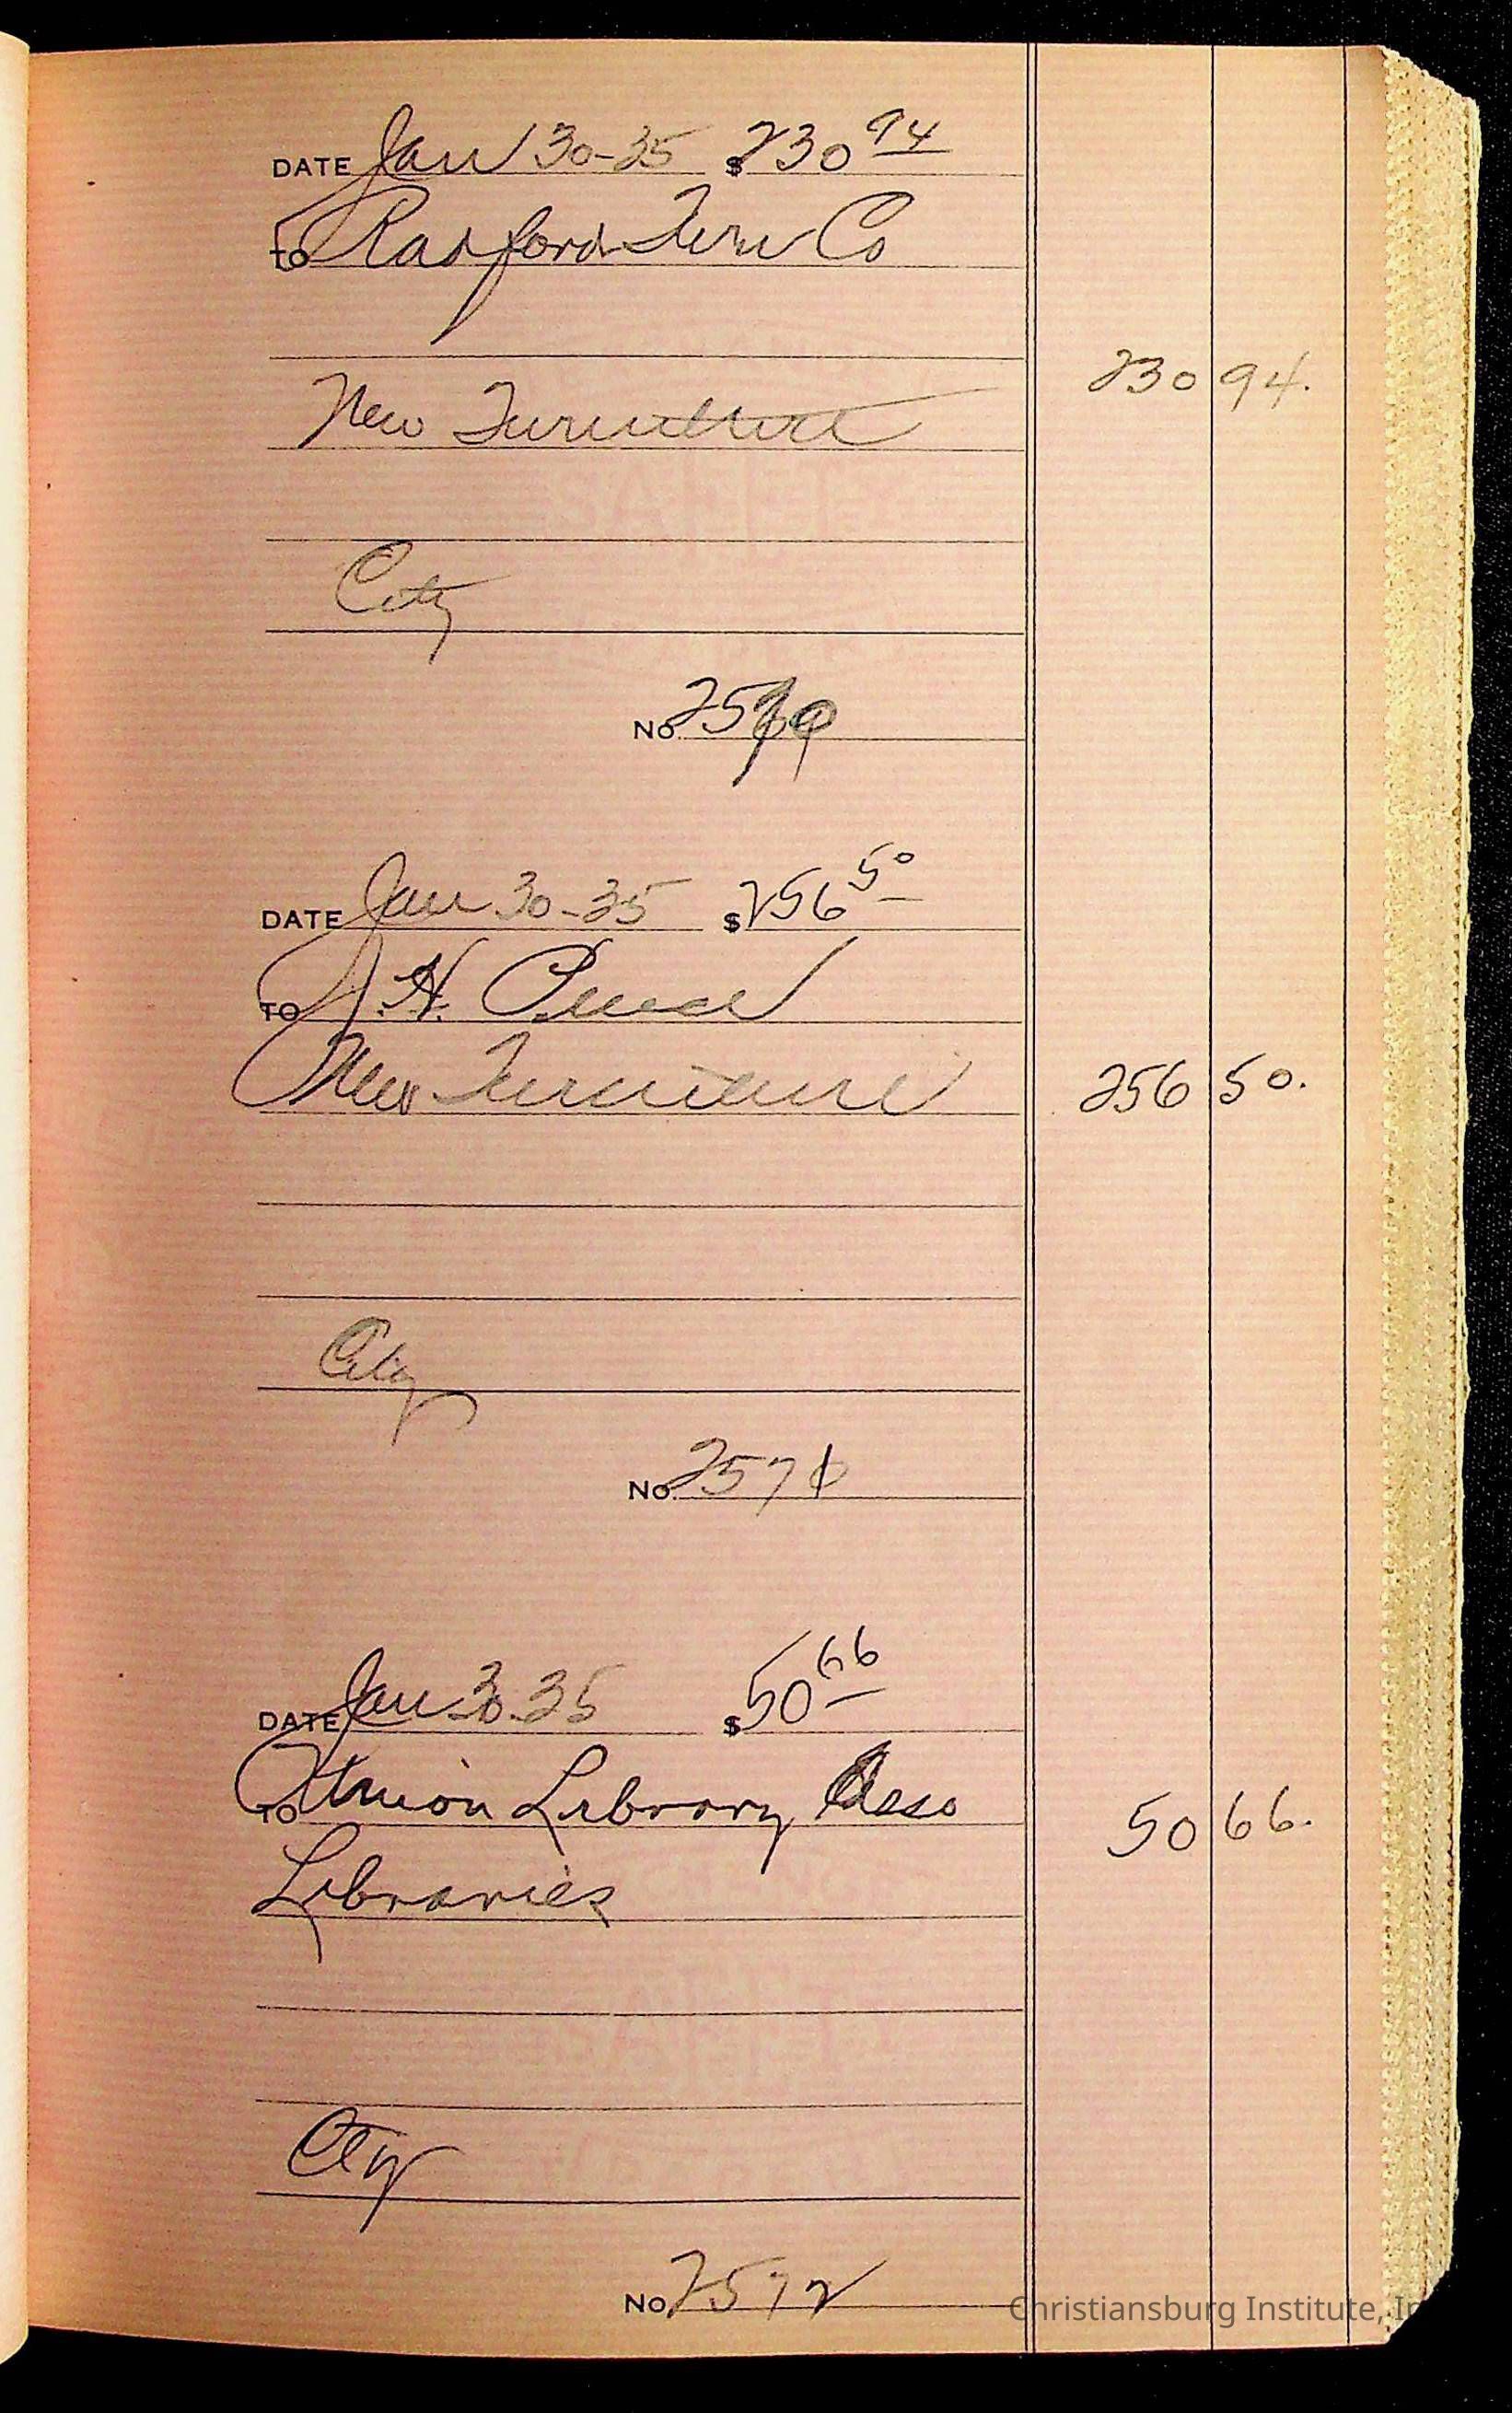 DATE Jan 30-35 $230 94
TO Radford Furn Co
230 94.
New Furniture
City
No.
DATE Jan 30-35 $256 50
TO J. H.
New Furniture 256 50.
City
No. 2571
DATE Jan 30-35 $50 66
TO Union Library Asso 50 66.
Libraries
City
No. 2572
Christiansburg Institute, In